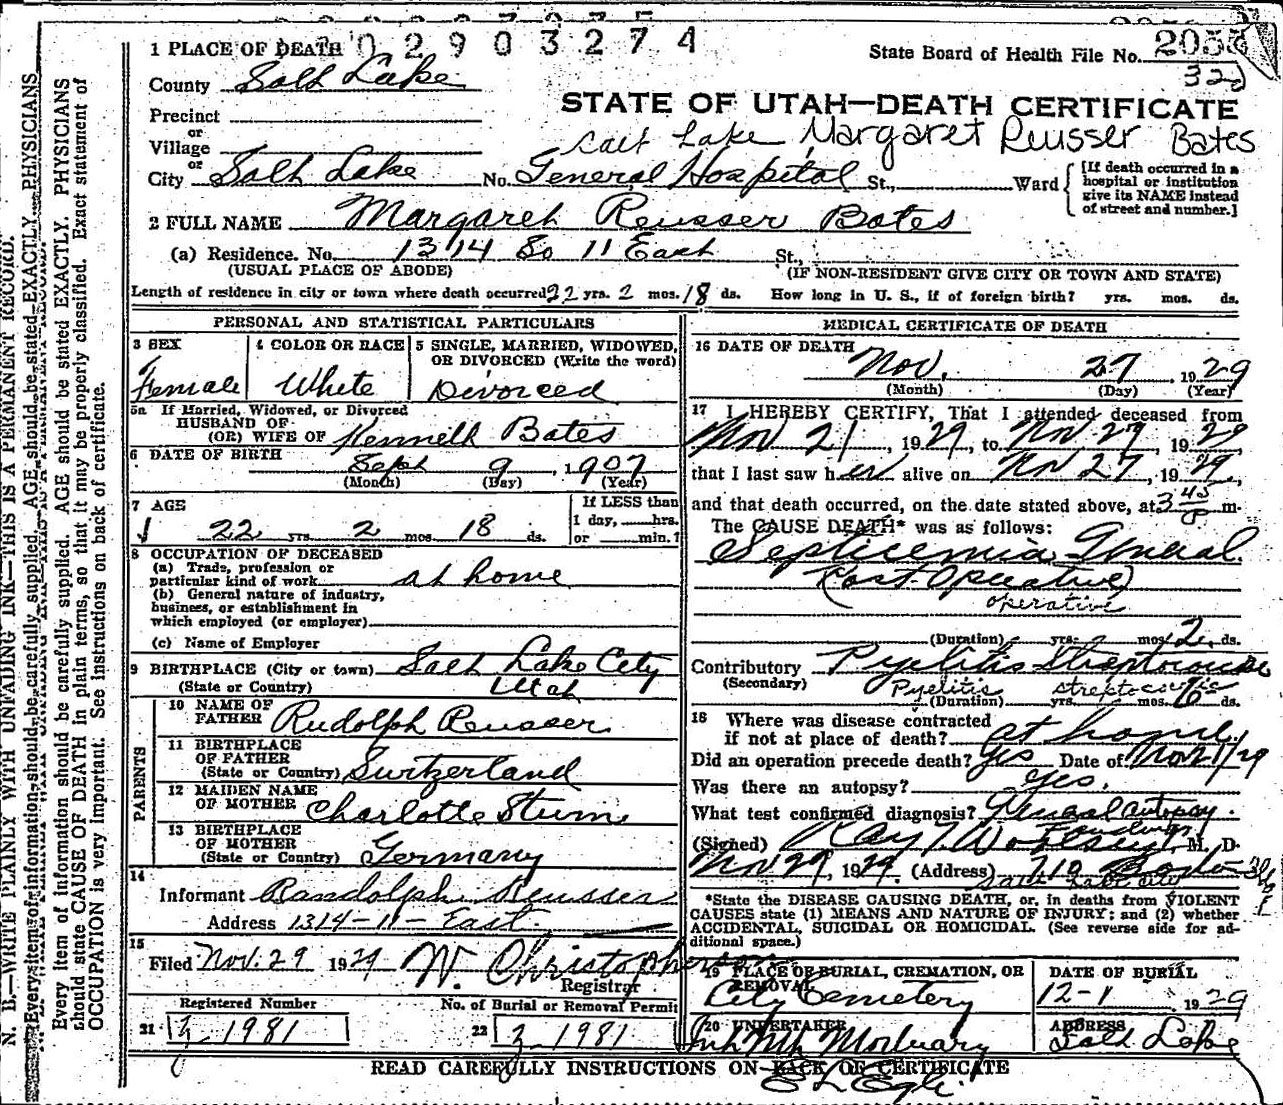 2902903274
1 PLACE OF DEATH
State Board of Health File No. 2055
322
County Salt Lake
STATE OF UTAH—DEATH CERTIFICATE
Precinct
or
Village
Salt Lake Margaret Reusser Bates
or
City Salt Lake No. General Hospital St., Ward
[If death occurred in a hospital or institution give its NAME instead of street and number.]
2 FULL NAME Margaret Reusser Bates
(a) Residence. No. 1314 So 11 East St.,
(USUAL PLACE OF ABODE) (IF NON-RESIDENT GIVE CITY OR TOWN AND STATE)
Length of residence in city or town where death occurred 22 yrs. 2 mos. 18 ds. How long in U. S., if of foreign birth? yrs. mos. ds.
PERSONAL AND STATISTICAL PARTICULARS
3 SEX
Female
4 COLOR OR RACE
White
5 SINGLE, MARRIED, WIDOWED,
OR DIVORCED (Write the word)
Divorced
5a If Married, Widowed, or Divorced
HUSBAND OF
(OR) WIFE OF Kenneth Bates
6 DATE OF BIRTH
Sept 9, 1907
(Month) (Day) (Year)
7 AGE
22 yrs 2 mos 18 ds.
If LESS than
1 day, hrs.
or min.?
8 OCCUPATION OF DECEASED
(a) Trade, profession or
particular kind of work at home
(b) General nature of industry,
business, or establishment in
which employed (or employer)
(c) Name of Employer
9 BIRTHPLACE (City or town) Salt Lake City
(State or Country) Utah
PARENTS
10 NAME OF
FATHER Rudolph Reusser
11 BIRTHPLACE
OF FATHER
(State or Country) Switzerland
12 MAIDEN NAME
OF MOTHER Charlotte Sturm
13 BIRTHPLACE
OF MOTHER
(State or Country) Germany
14
Informant Randolph Reusser
Address 1314-11-East
15
Filed Nov. 29 1929 W. Christopherson
Registrar
Registered Number
21 1981
No. of Burial or Removal Permit
22 1981
MEDICAL CERTIFICATE OF DEATH
16 DATE OF DEATH
Nov. 27, 1929
(Month) (Day) (Year)
17 I HEREBY CERTIFY, That I attended deceased from
Nov 21, 1929, to Nov 27, 1929
that I last saw her alive on Nov 27, 1929,
and that death occurred, on the date stated above, at 3 45 P m.
The CAUSE DEATH* was as follows:
Septicemia General
(Post-Operative)
operative
(Duration) yrs. mos. 2 ds.
Contributory Pyelitis Streptococcic
(Secondary) Pyelitis streptococcic
(Duration) yrs. mos. 6 ds.
18 Where was disease contracted
if not at place of death? at home.
Did an operation precede death? Yes Date of Nov 1/29
Was there an autopsy? Yes.
What test confirmed diagnosis? General autopsy.
Findings
(Signed) Ray T. Woolsey, M. D.
Nov 29, 1929. (Address) 710 Boston Bldg
Salt Lake City
*State the DISEASE CAUSING DEATH, or, in deaths from VIOLENT
CAUSES state (1) MEANS AND NATURE OF INJURY; and (2) whether
ACCIDENTAL, SUICIDAL OR HOMICIDAL. (See reverse side for ad-
ditional space.)
19 PLACE OF BURIAL, CREMATION, OR
REMOVAL
City Cemetery
DATE OF BURIAL
12-1 1929
20 UNDERTAKER
Mortuary
ADDRESS
Salt Lake
READ CAREFULLY INSTRUCTIONS ON BACK OF CERTIFICATE
N. B.—WRITE PLAINLY WITH UNFADING INK—THIS IS A PERMANENT RECORD.
Every item of information should be carefully supplied. AGE should be stated EXACTLY. PHYSICIANS
Every item of information should be carefully supplied. AGE should be stated EXACTLY. PHYSICIANS
should state CAUSE OF DEATH in plain terms, so that it may be properly classified. Exact statement of
OCCUPATION is very important. See instructions on back of certificate.